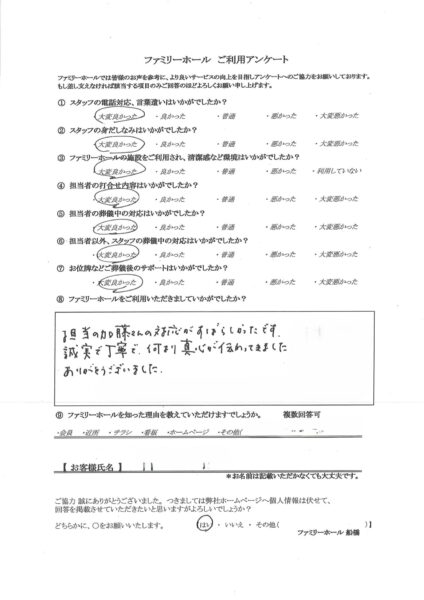 ファミリーホール　ご利用アンケート
ファミリーホールでは皆様のお声を参考に、より良いサービスの向上を目指しアンケートへのご協力をお願いしております。
もし差し支えなければ該当する項目のみご回答のほどよろしくお願い申し上げます。
① スタッフの電話対応、言葉遣いはいかがでしたか？
・大変良かった ・良かった ・普通 ・悪かった ・大変悪かった
② スタッフの身だしなみはいかがでしたか？
・大変良かった ・良かった ・普通 ・悪かった ・大変悪かった
③ ファミリーホールの施設をご利用され、清潔感など環境はいかがでしたか？
・大変良かった ・良かった ・普通 ・悪かった ・利用していない
④ 担当者の打合せ内容はいかがでしたか？
・大変良かった ・良かった ・普通 ・悪かった ・大変悪かった
⑤ 担当者の葬儀中の対応はいかがでしたか？
・大変良かった ・良かった ・普通 ・悪かった ・大変悪かった
⑥ 担当者以外、スタッフの葬儀中の対応はいかがでしたか？
・大変良かった ・良かった ・普通 ・悪かった ・大変悪かった
⑦ お位牌などご葬儀後のサポートはいかがでしたか？
・大変良かった ・良かった ・普通 ・悪かった ・大変悪かった
⑧ ファミリーホールをご利用いただきましていかがでしたか？
担当の加藤さんの対応がすばらしかったです。
誠実で丁寧で、何より真心が伝わってきました
ありがとうございました。
⑨ ファミリーホールを知った理由を教えていただけますでしょうか。　複数回答可
・会員 ・近所 ・チラシ ・看板 ・ホームページ ・その他(
【 お客様氏名 】
＊お名前は記載いただかなくても大丈夫です。
ご協力 誠にありがとうございました。つきましては弊社ホームページへ個人情報は伏せて、
回答を掲載させていただいたいと思いますがよろしいでしょうか？
どちらかに、○をお願いいたします。 【はい ・ いいえ ・ その他( )】
ファミリーホール 船橋